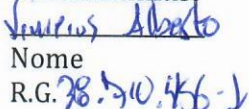 Vinicius Alberto
Nome
R.G. 38.710.456-1